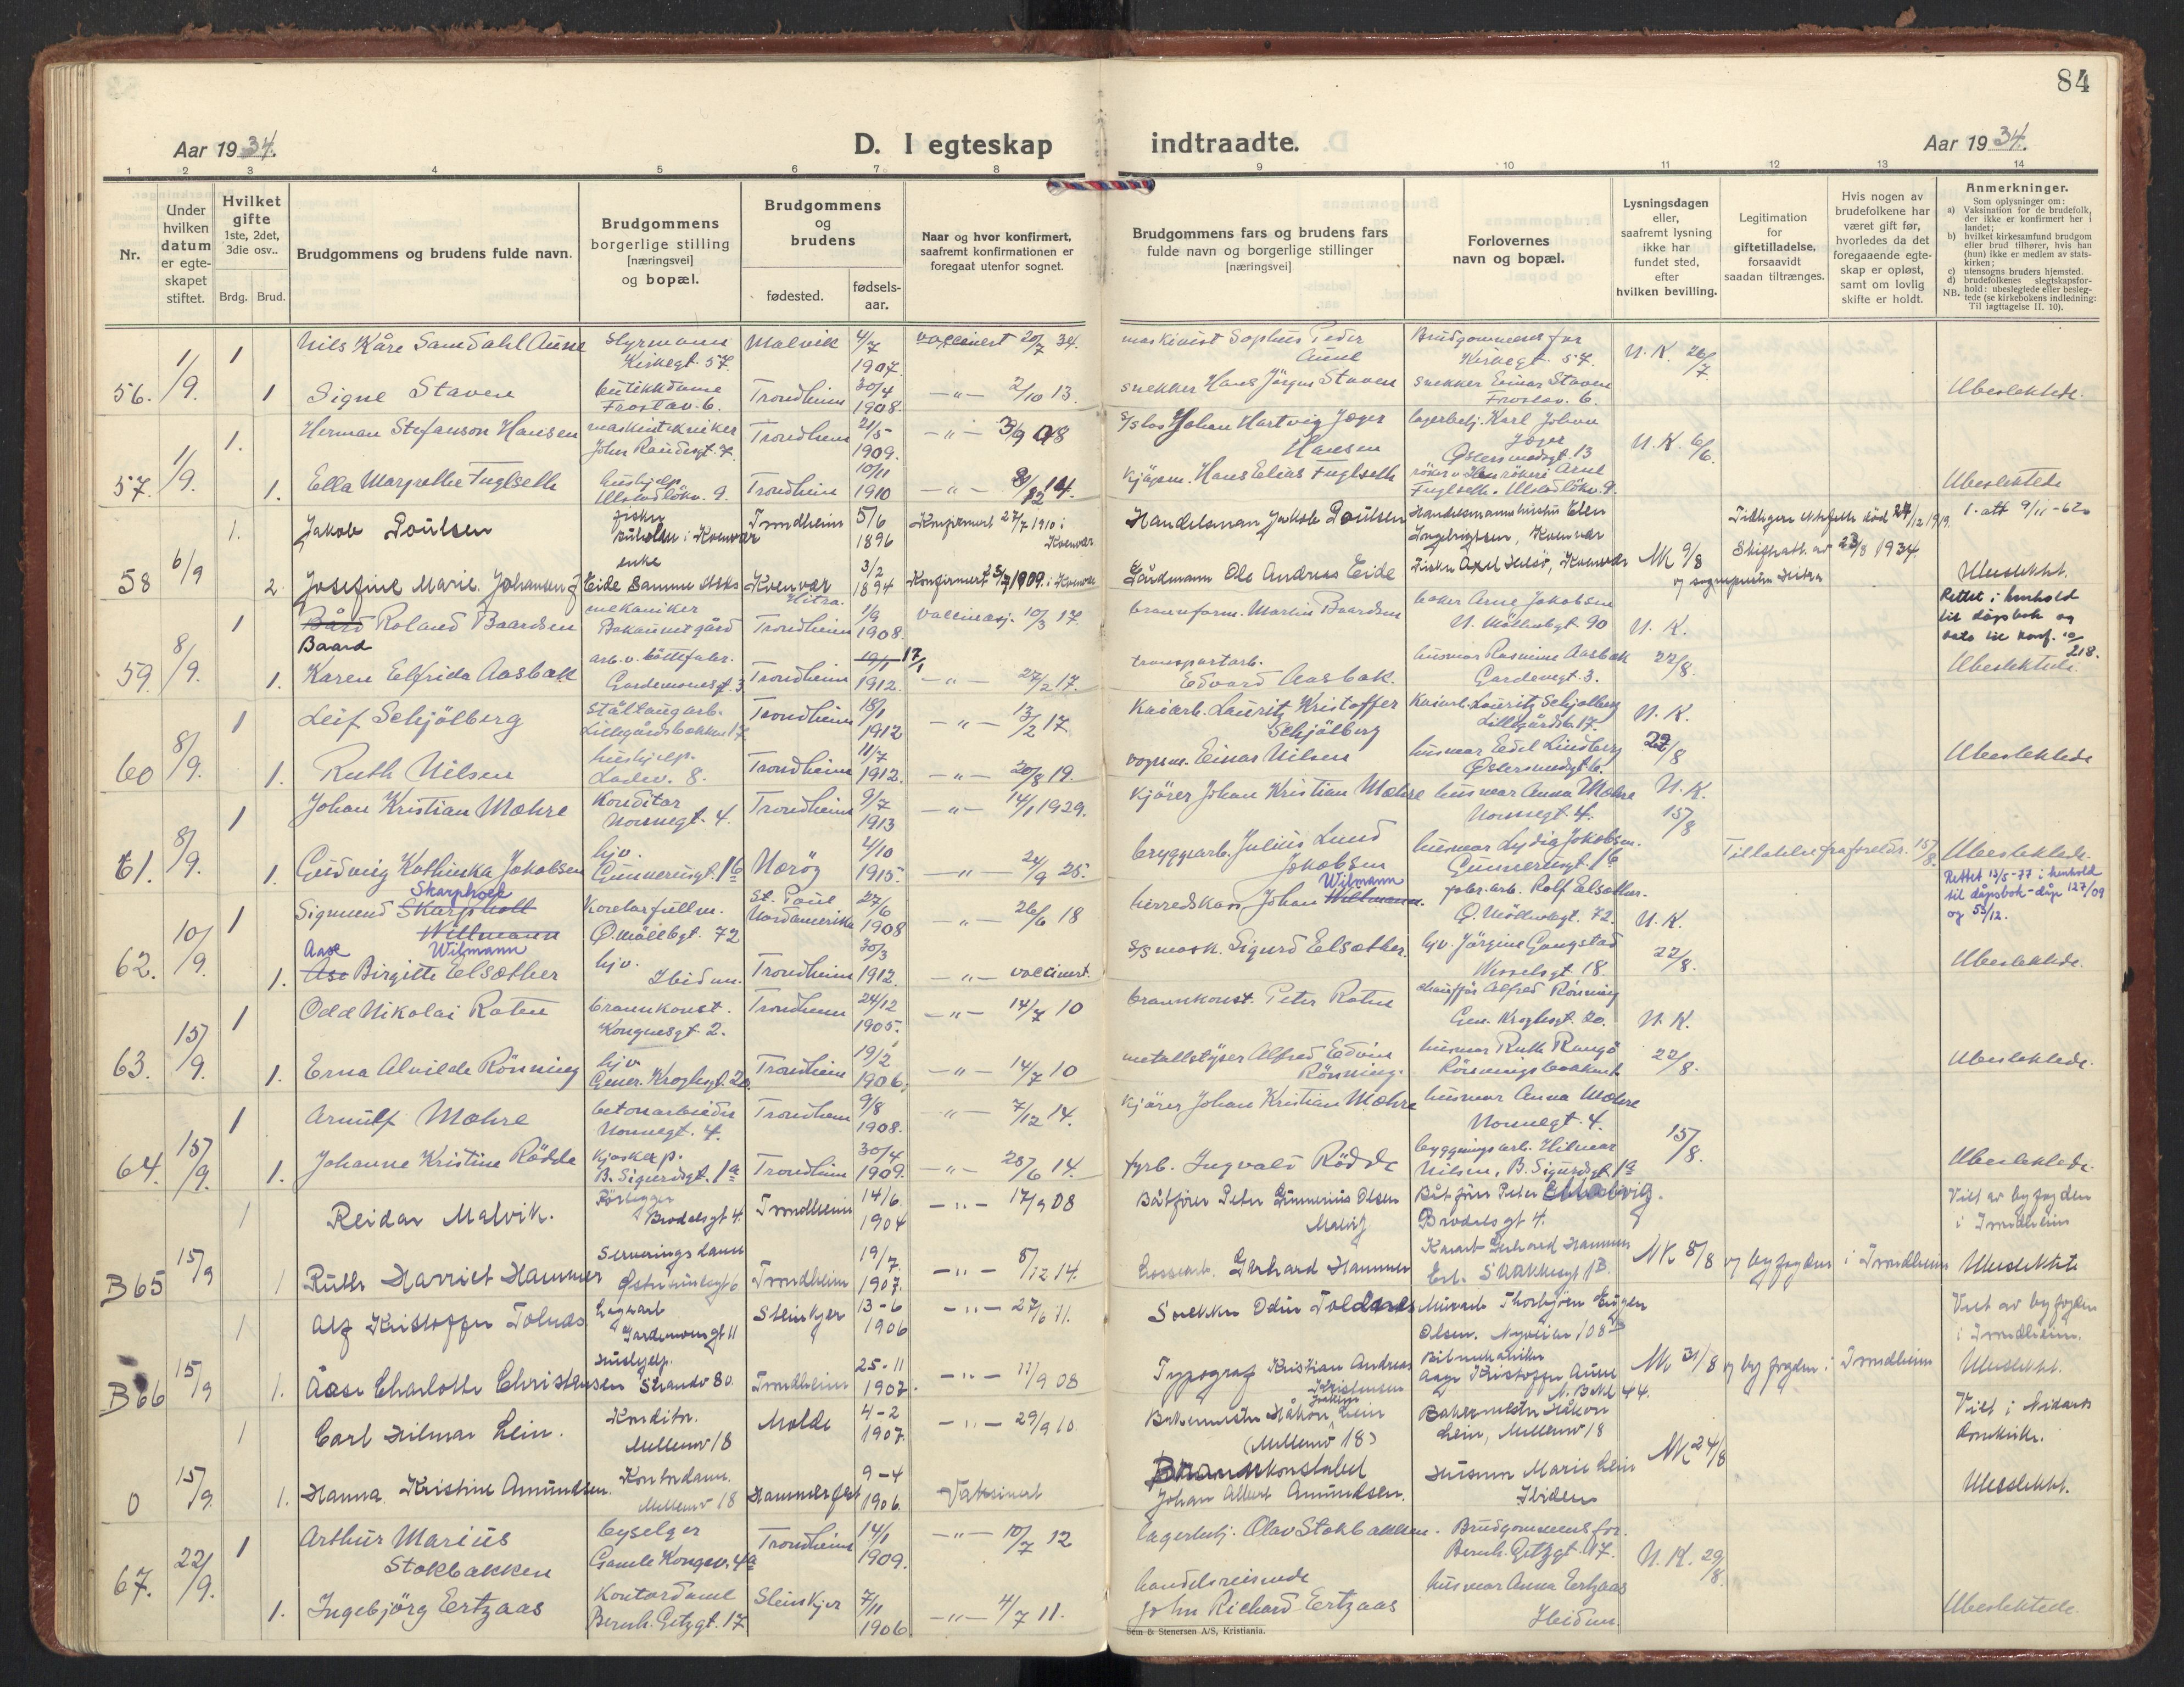 84
Aar 1934.
D. I egteskap
indtraadte.
Aar 1934.
1 2 3 4 5 6 7 8 9 10 11 12 13 14
Nr.
Under hvilken datum er egte-skapet stiftet.
Hvilket gifte 1ste, 2det, 3die osv..
Brdg. Brud.
Brudgommens og brudens fulde navn.
Brudgommens borgerlige stilling [næringsvei] og bopæl.
Brudgommens og brudens
fødested.
fødsels-aar.
Naar og hvor konfirmert, saafremt konfirmationen er foregaat utenfor sognet.
Brudgommens fars og brudens fars fulde navn og borgerlige stillinger [næringsvei]
Forlovernes navn og bopæl.
Lysningsdagen eller, saafremt lysning ikke har fundet sted, efter hvilken bevilling.
Legitimation for giftetilladelse, forsaavidt saadan tiltrænges.
Hvis nogen av brudefolkene har været gift før, hvorledes da det foregaaende egte-skap er opløst, samt om lovlig skifte er holdt.
Anmerkninger.
Som oplysninger om:
a) Vaksination for de brudefolk, der ikke er konfirmert her i landet;
b) hvilket kirkesamfund brudgom eller brud tilhører, hvis han (hun) ikke er medlem av stats-kirken;
c) utensogns bruders hjemsted.
d) brudefolkenes slegtskapsfor-hold: ubeslegtede eller besleg-tede (se kirkebokens indledning: Til iagttagelse II. 10).
NB.
56. 1/9. 1 Nils Kåre Samdahl Aune Styrmann Kirkegt. 57. Malvik 4/7 1907. vaccinert 20/7 34. maskinist Sophus Peder Aune Brudgommens far Kirkegt. 57. U. K. 26/7.
1 Signe Staven butikkdame Frostav. 6. Trondheim 30/4 1908. —"— 2/10 13. snekker Hans Jörgen Staven snekker Einar Staven Frostav. 6. Ubeslektede.
57. 1/9. 1. Herman Stefanson Hansen maskintekniker Trondheim 21/5 1909. —"— 3/9 08 Johan Hartvig Jæger Hansen lagerbetj. Karl Johan Jæger Östersundsgt. 13 U. K. 6/6.
1. Ella Margrethe Fuglseth hushjelp. 9. Trondheim 10/11 1910 —"— 14. Kjøpm. Hans Elias Fuglseth Arne Fuglseth. Ubeslektede
58 6/9 1. Jakob Poulsen fisker Trondheim 5/6 1896 Konfirmert 27/7 1910 i Kvenvær Handelsman Jakob Poulsen Ingebrigtsen, Kvenvær 1. att 9/11-62
2. Josefine Marie Johansen f. Eide enke Samme sted Kvenvær Hitra. 3/2 1894 Konfirmert 1909. i Kvenvær Gårdmann Ole Andreas Eide Fisker Axel Kvenvær NK 9/8 Skifteatt. av 23/3 1934. Ubeslektet.
59. 8/9. 1 Bård Roland Baardsen mekaniker Bakaunet gård Trondheim 1/9 1908. vaccinasj. 10/3 17. brannform. Martin Baardsen baker Arne Jakobsen N. Möllenbgt. 90 U. K. Rettet i henhold til dåpsbok og
Baard
1. Karen Elfrida Aasbak arb. v. bøttefabr. Gardemoensgt. 3. Trondheim 19/1 17/1 1912. —"— 27/2 17. transportarb. Edvard Aasbak. husmor Rasmine Aasbak Gardemgt. 3. 22/8. Ubeslektede.
60 8/9. 1 Leif Schjölberg Ståltaugarb. Lillegårdsbakken 17. Trondheim 18/1 1912 —"— 13/2 17 Kaiarb. Lauritz Kristoffer Schjölberg Kaiarb. Lauritz Schjölberg Lillegårdsb. 17. U. K.
1. Ruth Nilsen hushjelp. Ladev. 8. Trondheim 11/7 1912. —"— 20/8 19. vognm. Einar Nilsen husmor Edel Lindberg Östersundsgt. 6. /8 Ubeslektede
61. 8/9. 1 Johan Kristian Mæhre Konditor Nonnegt. 4. Trondheim 9/7 1913 —"— 14/1 1929. kjører Johan Kristian Mæhre husmor Anna Mæhre Nonnegt. 4. U. K. 15/8
1. Gudveig Kathinka Jakobsen hjv. Gunnerusgt. 16 Nærøy 4/10 1915. —"— 24/9 25. bryggarb. Julius Lund Jakobsen husmor Lydia Jakobsen. Gunnerusgt. 16 Tillatelse fra foreldr. 15/8. Ubeslektede.
62. 10/9. 1 Sigmund Skarpholt Willmann Skarphoel Wilmann kontorfullm. Ö. Möllbgt. 72 St. Paul Nordamerika 27/6 1908 —"— 26/6 18 herredskass. Johan Willmann. Wilmann fabr. arb. Rolf Elsæther. Ö. Möllenbgt. 72. U. K. Rettet 13/5-77 i henhold til dåpsbok - dåp 127/09 og 55/12.
1. Åse Aase Birgitte Elsæther hjv. Ibidem. Trondheim 30/3 1912. —"— vaccinert. s/s mask. Sigurd Elsæther. hjv. Jörgine Gangstad Wesselsgt. 18. 22/8. Ubeslektede.
63. 15/9. 1 Odd Nikolai Roten brannkonst. Kongensgt. 2. Trondheim 24/12 1905. —"— 14/7 10 brannkonst. Peter Roten chauffør Alfred Rönning Gen. Kroghsgt. 20. U. K.
1. Erna Alvilde Rönning hjv Gener. Kroghsgt. 20. Trondheim 19/2 1906. —"— 14/7 10 metallstöper Alfred Edvin Rönning. husmor Ruth Rangö Rönningsbakken 22/8. Ubeslektede.
64. 15/9. 1 Arnulf Mæhre betonarbeider Nonnegt. 4. Trondheim 9/8 1908. —"— 7/12 14. kjører Johan Kristian Mæhre husmor Anna Mæhre Nonnegt. 4. 15/8.
1. Johanne Kristine Rödde B. Sigurdsgt. 1a Trondheim 30/4 1909. —"— 14. fyrb. Ingvald Rödde bygningsarb. Hilmar Nilsen, B. Sigurdsgt. 1a Ubeslektede.
B65 15/9 1 Reidar Malvik. Rörlegger Brodalsgt 4. Trondheim 14/6. 1904 —"— 17/9 08 Båtfører Peter Olsen Malvig Båtfører Peter Brodalsgt 4. Viet av byfogden i Trondheim
1 Ruth Harriet Hammer Serveringsdame Trondheim 19/7. 1907. —"— 14. Gerhard Hammer Gerhard Hammer NK 8/8 og byfogden i Trondheim Ubeslektet
B66 15/9 1 Alf Kristoffer Tolnæs Lagerarb Gardemoensgt 11 Steinkjer 13-6 1906 —"— 27/6 11. Snekker Odin Murarb. Thorbjørn Eugen Olsen. Nyveien Viet av byfogden i Trondheim.
1. Åase Charlotte Christiansen Hushjelp. Strandv 80. Trondheim 25-11 1907. —"— 17/9 08 Typograf Kristian Andreas Kristensen Bilmekaniker Aage Kristoffer Aune NK 31/8 og byfogden i Trondheim Ubeslektet.
0 15/9. 1 Carl Hilmar Lein. Konditor. Mellemv 18 Molde 4-2 1907. —"— 29/9 10 Bakermester Håkon Lein (Mellemv 18) Bakermester Håkon Lein, Mellemv 18 NK 24/8 Viet i Nidaros domkirke.
1. Hanna Kristine Amundsen. Kontordame. Mellemv 18 Hammerfest 9-4 1906. Vaksinert Brannkonstabel Johan Albert Amundsen. Husmor Marie Lein Ibidem Ubeslektet.
67. 22/9. 1 Arthur Marius Stokbakken byselger Gamle Kongev. 4a Trondheim 14/1 1909. —"— 10/7 12 lagerbetj. Olav Stokbakken. Brudgommens far. Bernh. Getzgt. 17. U. K. 29/8.
1. Ingebjörg Ertzaas Kontordame Bernh. Getzgt. 17 Steinkjer 7/11 1906 —"— 4/7 11. handelsreisende John Richard Ertzaas husmor Anna Ertzaas Ibidem. Ubeslektede.
Sem & Stenersen A/S, Kristiania.